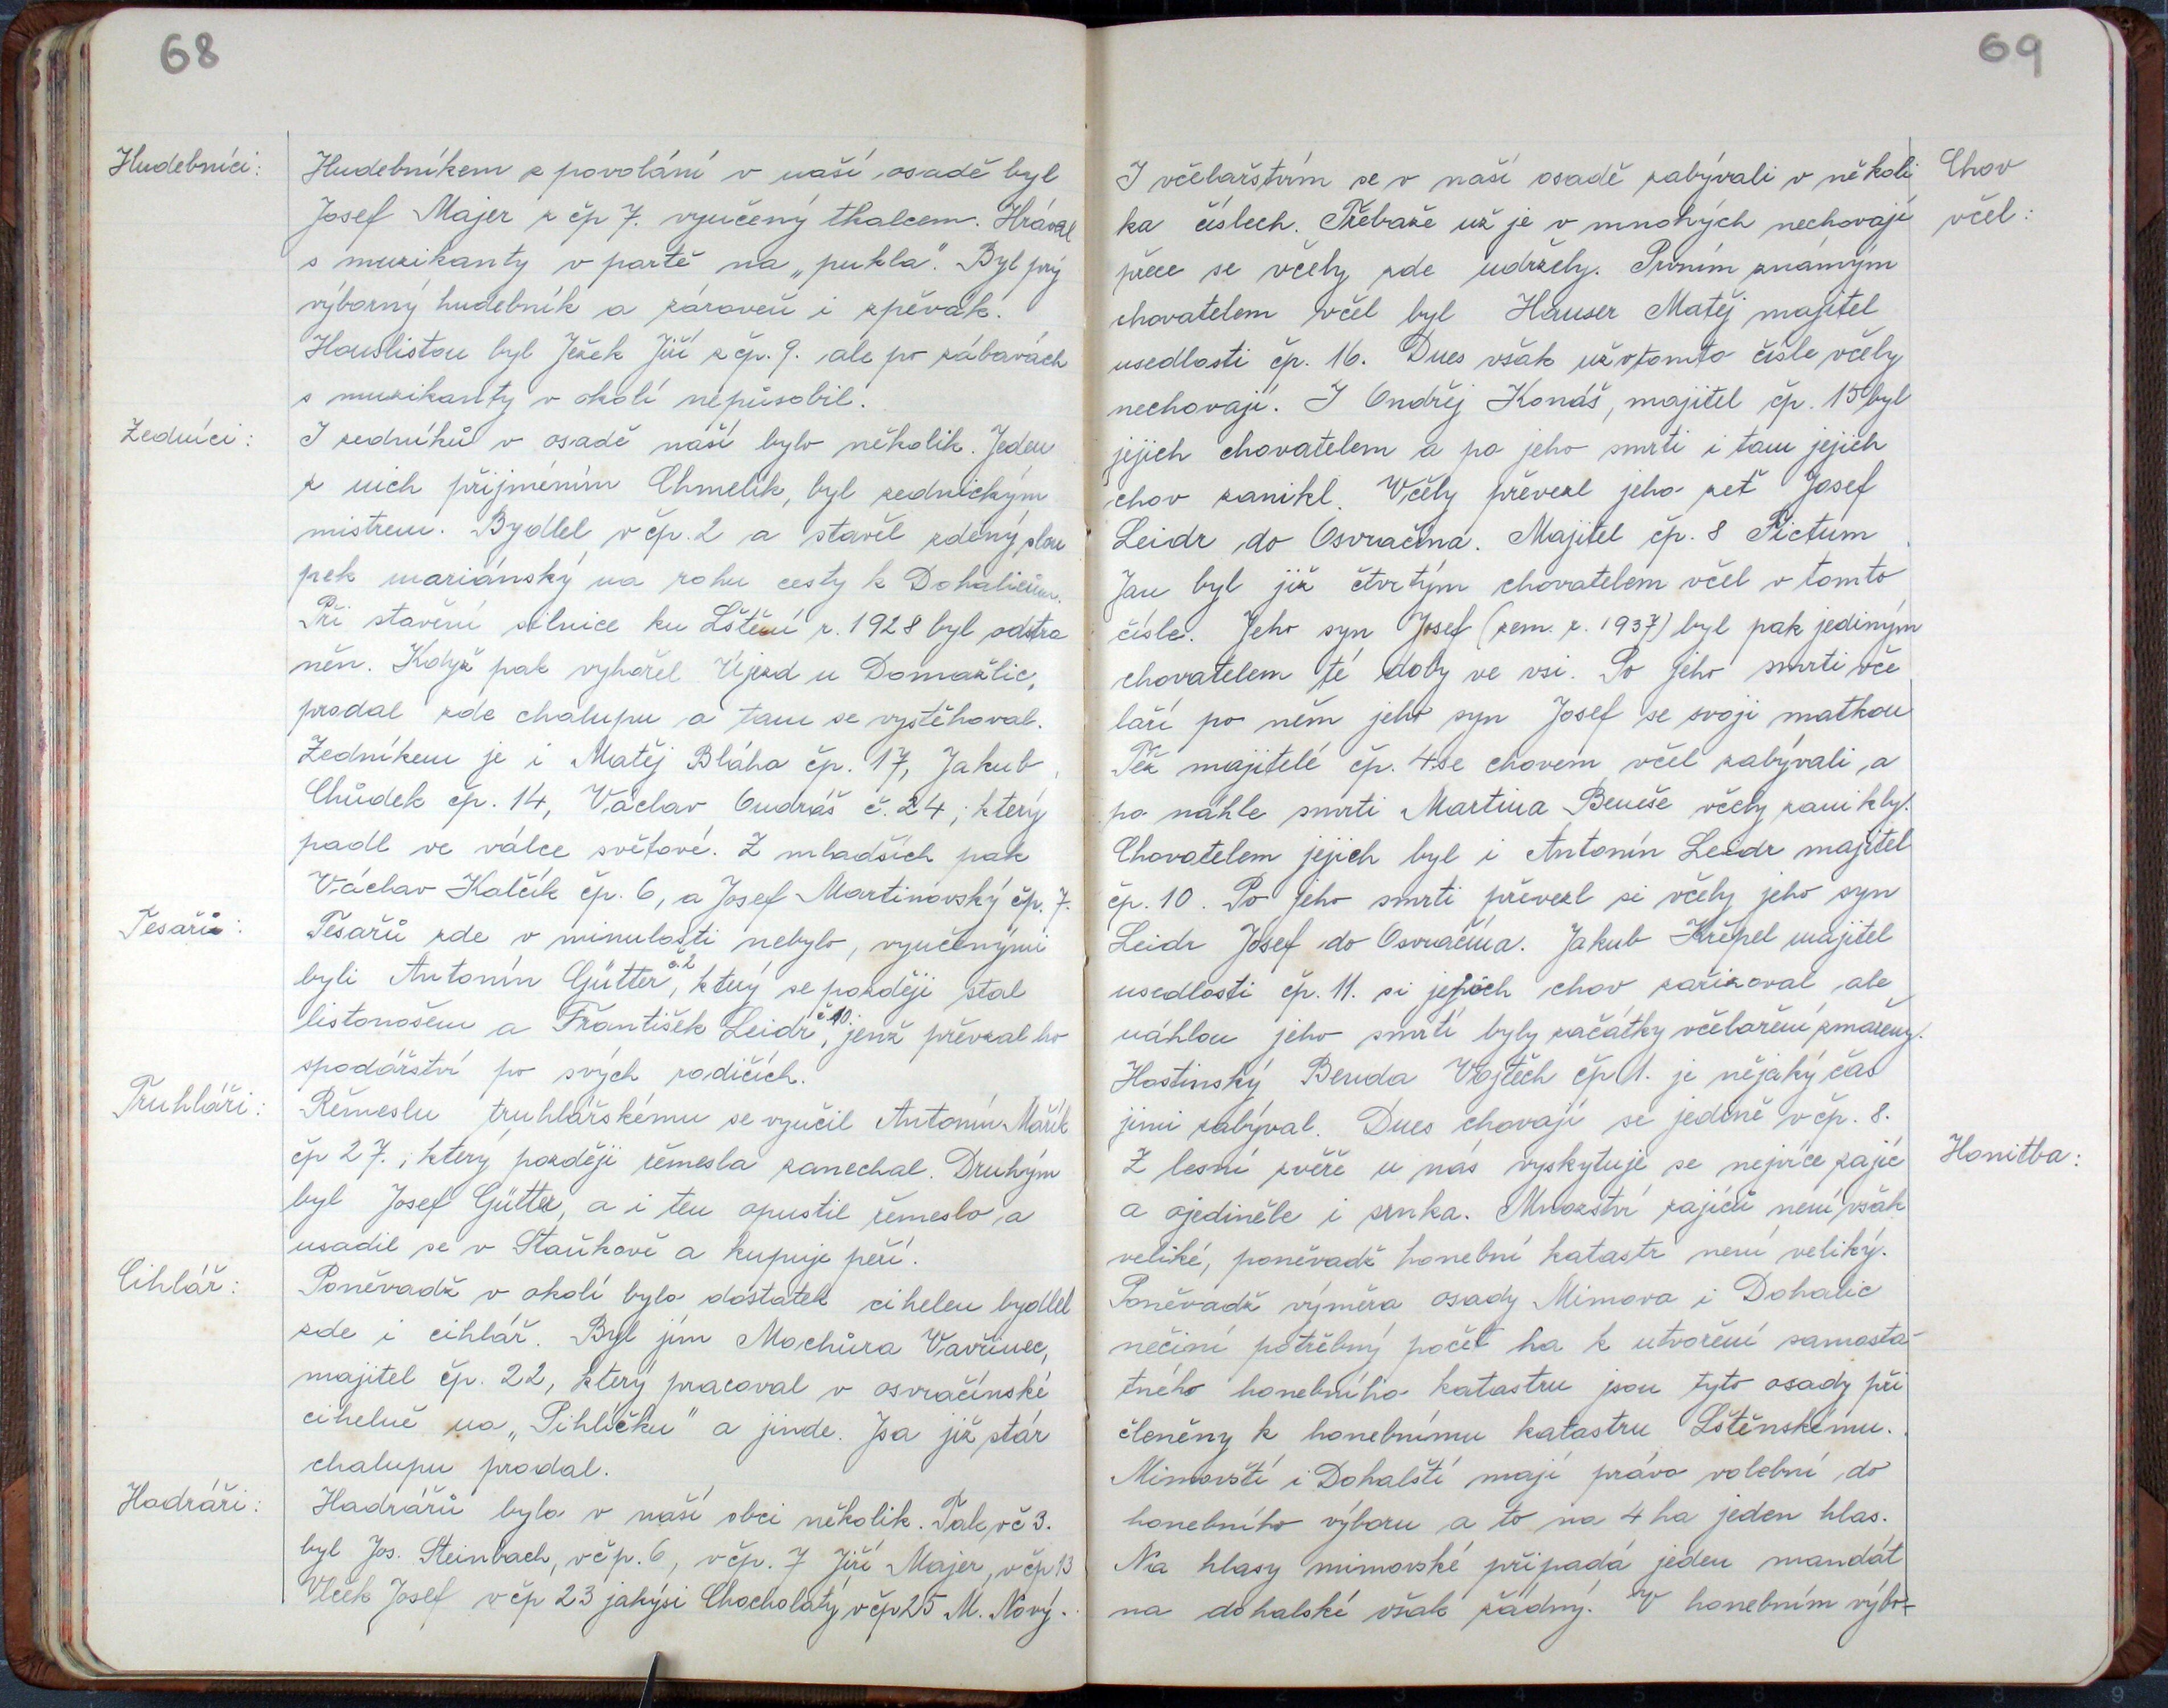 68
Hudebníci:
Hudebníkem z povolání v naší osadě byl
Josef Majer z čp 7. vyučený tkalcem. Hrával
s muzikanty v partě na „pukla“. Byl prý
výborný hudebník a zároveň i zpěvák.
Houslistou byl Ježek Jiří z čp. 9. ale po zábavách
s muzikanty v okolí nepůsobil.
Zedníci:
I zedníků v osadě naší bylo několik. Jeden
z nich přijměním Chmelík, byl zednickým
mistrem. Bydlel v čp. 2 a stavěl zdený slou
pek mariánský na rohu cesty k Dohalicům.
Při stavění silnice ku Lštění r. 1928 byl odstra
něn. Když pak vyhořel Újezd u Domažlic,
prodal zde chalupu a tam se vystěhoval.
Zedníkem je i Matěj Bláha čp. 17, Jakub
Chůdek čp. 14, Václav Ondráš č. 24, který
padl ve válce světové. Z mladších pak
Václav Kalčík čp. 6, a Josef Martinovský čp. 7.
Tesařů:
Tesařů zde v minulosti nebylo, vyučenými
byli Antonín Gütter, č.2 který se později stal
listonošem a František Leidr, č.10. jenž převzal ho
spodářství po svých rodičích.
Truhláři:
Řemeslu truhlářskému se vyučil Antonín Mařík
čp 27., který později řemesla zanechal. Druhým
byl Josef Gütter, a i ten opustil řemeslo a
usadil se v Staňkově a kupuje peří.
Cihlář:
Poněvadž v okolí bylo dostatek cihelen bydlel
zde i cihlář. Byl jím Mochůra Vavřinec,
majitel čp. 22, který pracoval v osvračínské
cihelně na „Pihlíčku“ a jinde. Jsa již stár
chalupu prodal.
Hadráři:
Hadrářů bylo v naší obci několik. Tak v č 3.
byl Jos. Steinbach, v čp. 6, v čp. 7 Jiří Majer, v čp 13
Vlček Josef v čp 23 jakýsi Chocholatý v čp 25 M. Nový.
69
Chov
včel:
I včelařstvím se v naší osadě zabývali v několi
ka číslech. Třebaže už je v mnohých nechovají
přece se včely zde udržely. Prvním známým
chovatelem včel byl Hauser Matěj majitel
usedlosti čp. 16. Dnes však už v tomto čísle včely
nechovají. I Ondřej Konáš, majitel čp. 15 byl
jejich chovatelem a po jeho smrti i tam jejich
chov zanikl. Včely převezl jeho zeť Josef
Leidr do Osvračína. Majitel čp. 8 Tictum
Jan byl již čtvrtým chovatelem včel v tomto
čísle. Jeho syn Josef (zem. r. 1937) byl pak jediným
chovatelem té doby ve vsi. Po jeho smrti vče
laří po něm jeho syn Josef se svojí matkou
Též majitelé čp. 4 se chovem včel zabývali, a
po náhle smrti Martina Beneše včely zanikly.
Chovatelem jejich byl i Antonín Leidr majitel
čp. 10. Po jeho smrti převezl si včely jeho syn
Leidr Josef do Osvračína. Jakub Křepel majitel
usedlosti čp. 11. si jejich chov zařizoval ale
náhlou jeho smrtí byly začátky včelaření zmařeny.
Hostinský Benda Vojtěch čp 1. je nějaký čas
jimi zabýval. Dnes chovají se jedině v čp. 8.
Honitba:
Z lesní zvěře u nás vyskytuje se nejvíce zajíc
a ojediněle i srnka. Množství zajíců není však
veliké, poněvadž honební katastr není veliký.
Poněvadž výměra osady Mimova i Dohalic
nečiní potřebný počet ha k utvoření samosta-
tného honebního katastru jsou tyto osady při
členěny k honebnímu katastru Lštěnskému.
Mimovští i Dohalští mají právo volební do
honebního výboru a to na 4 ha jeden hlas.
Na hlasy mimovské připadá jeden mandát
na dohalské však žádný. V honebním výbo-